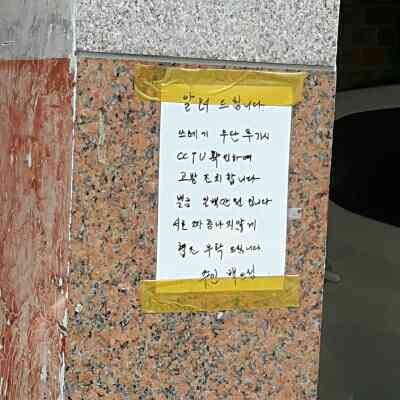 알려 드립니다.
쓰레기 무단투기시
CCTV확인하여
고발 조치합니다
벌금 입니다
서로 짜증나지않게
협조 부탁 드립니다.
주인 백